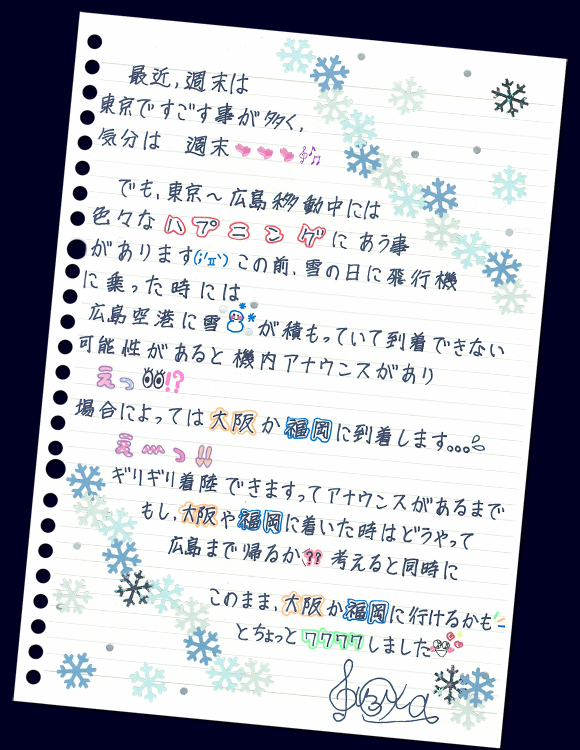 最近、週末は
東京ですごす事が多く、
気分は 週末
でも、東京〜広島移動中には
色々なハプニングにあう事
があります(;'Д`)この前、雪の日に飛行機
に乗った時には
広島空港に雪が積もっていて到着できない
可能性があると機内アナウンスがあり
えっ!?
場合によっては大阪か福岡に到着します...
え〜っ!!
ギリギリ着陸できますってアナウンスがあるまで
もし、大阪や福岡に着いた時はどうやって
広島まで帰るか??考えると同時に
このまま、大阪か福岡に行けるかも
とちょっとワクワクしました